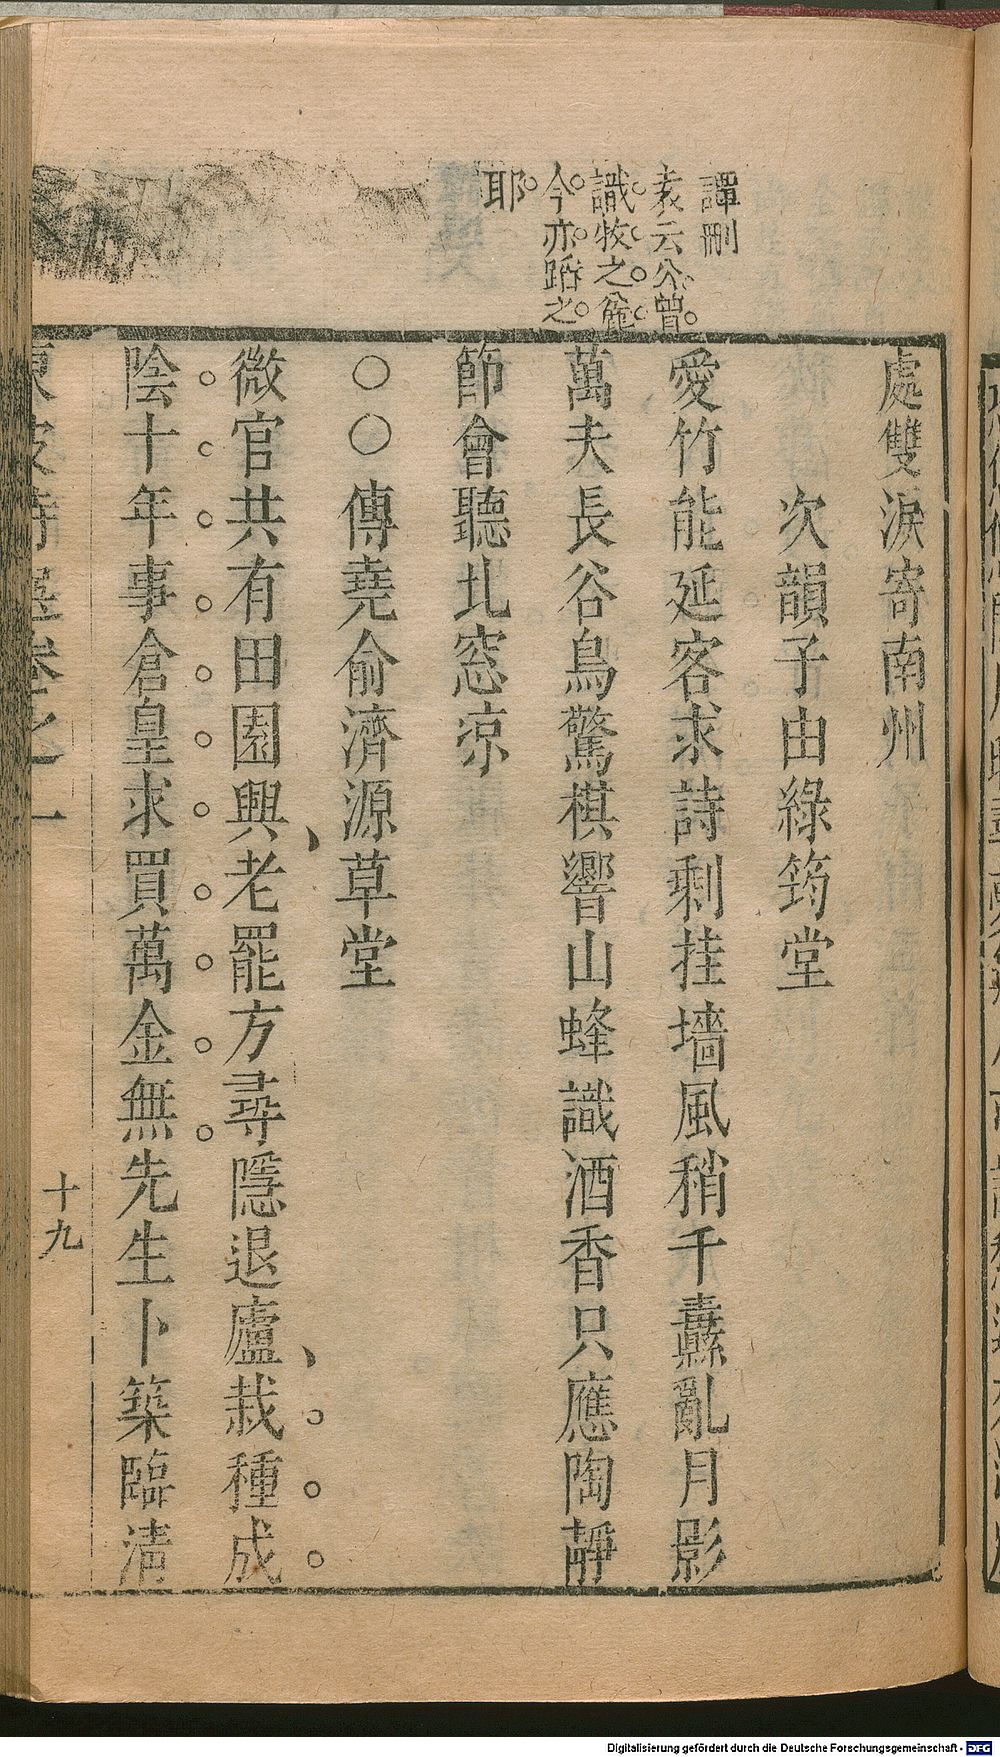 譚刪
袁云公曾
識牧之從
今亦蹈之
耶
處雙淚寄南州
次韻子由綠筠堂
愛竹能延客求詩剩挂墻風稍千纛亂月影
萬夫長谷鳥驚棋響山蜂識酒香只應陶靜
節會聽北窓凉
○○傳堯俞濟源草堂
微官共有田園興老罷方尋隱退廬栽種成
陰十年事倉皇求買萬金無先生卜築臨淸
東坡詩選卷之一
十九
Digitalisierung gefördert durch die Deutsche Forschungsgemeinschaft - DFG